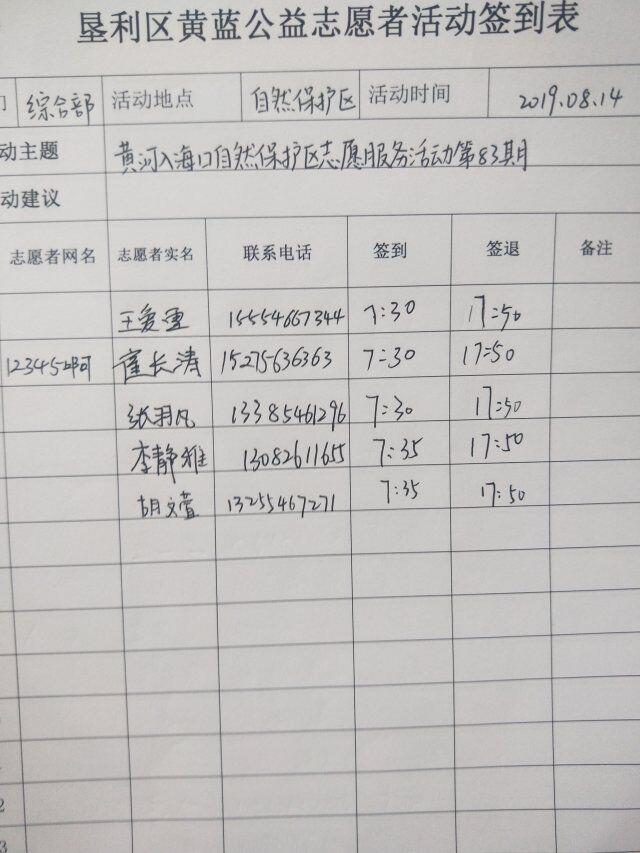 垦利区黄蓝公益志愿者活动签到表
门 综合部 活动地点 自然保护区 活动时间 2019.08.14
动主题 黄河入海口自然保护区志愿服务活动第83期
动建议
志愿者网名 志愿者实名 联系电话 签到 签退 备注
王爱雪 15554667344 7:30 17:50
12345啊 崔长涛 15275636363 7:30 17:50
张羽凡 13385461296 7:30 17:50
李静雅 13082611655 7:35 17:50
胡文萱 13255467271 7:35 17:50
2
3